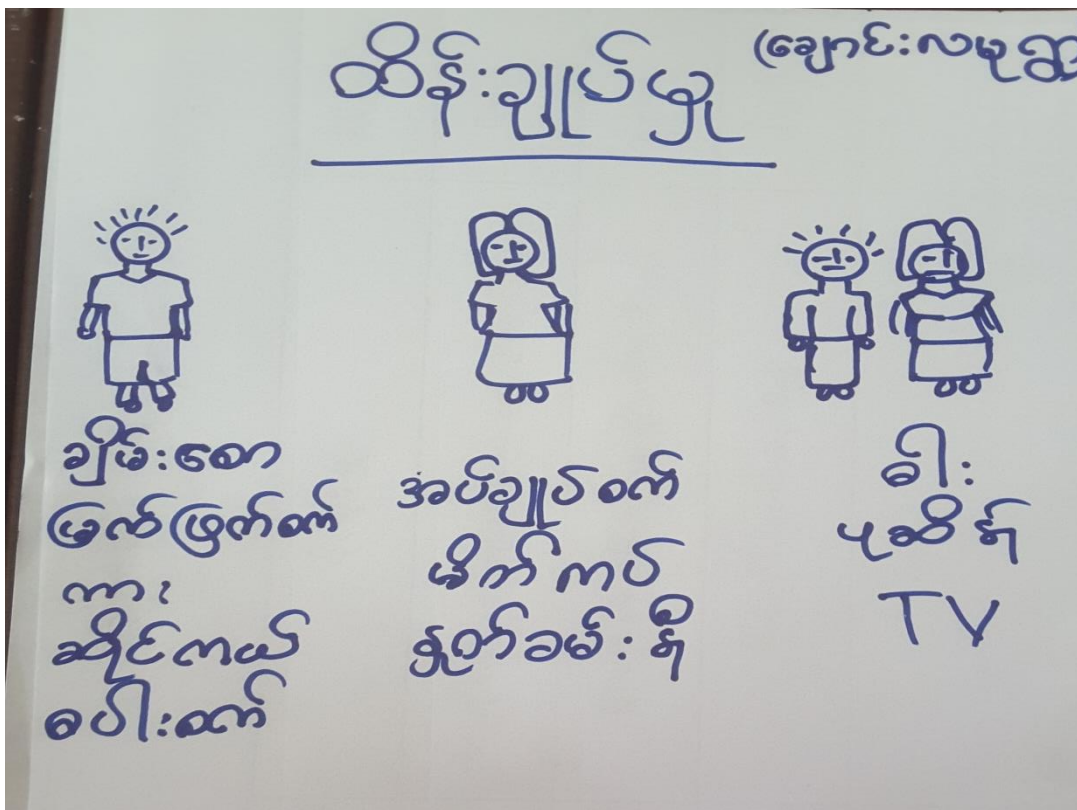 ထိန်းချုပ်မှု
(ချောင်းလမုရွာ
ချိမ်းစော
မြက်ဖြတ်စက်
ကား
ဆိုင်ကယ်
စပါးစက်
အပ်ချုပ်စက်
မိတ်ကပ်
နှုတ်ခမ်းနီ
ဓါး
ပုဆိန်
TV